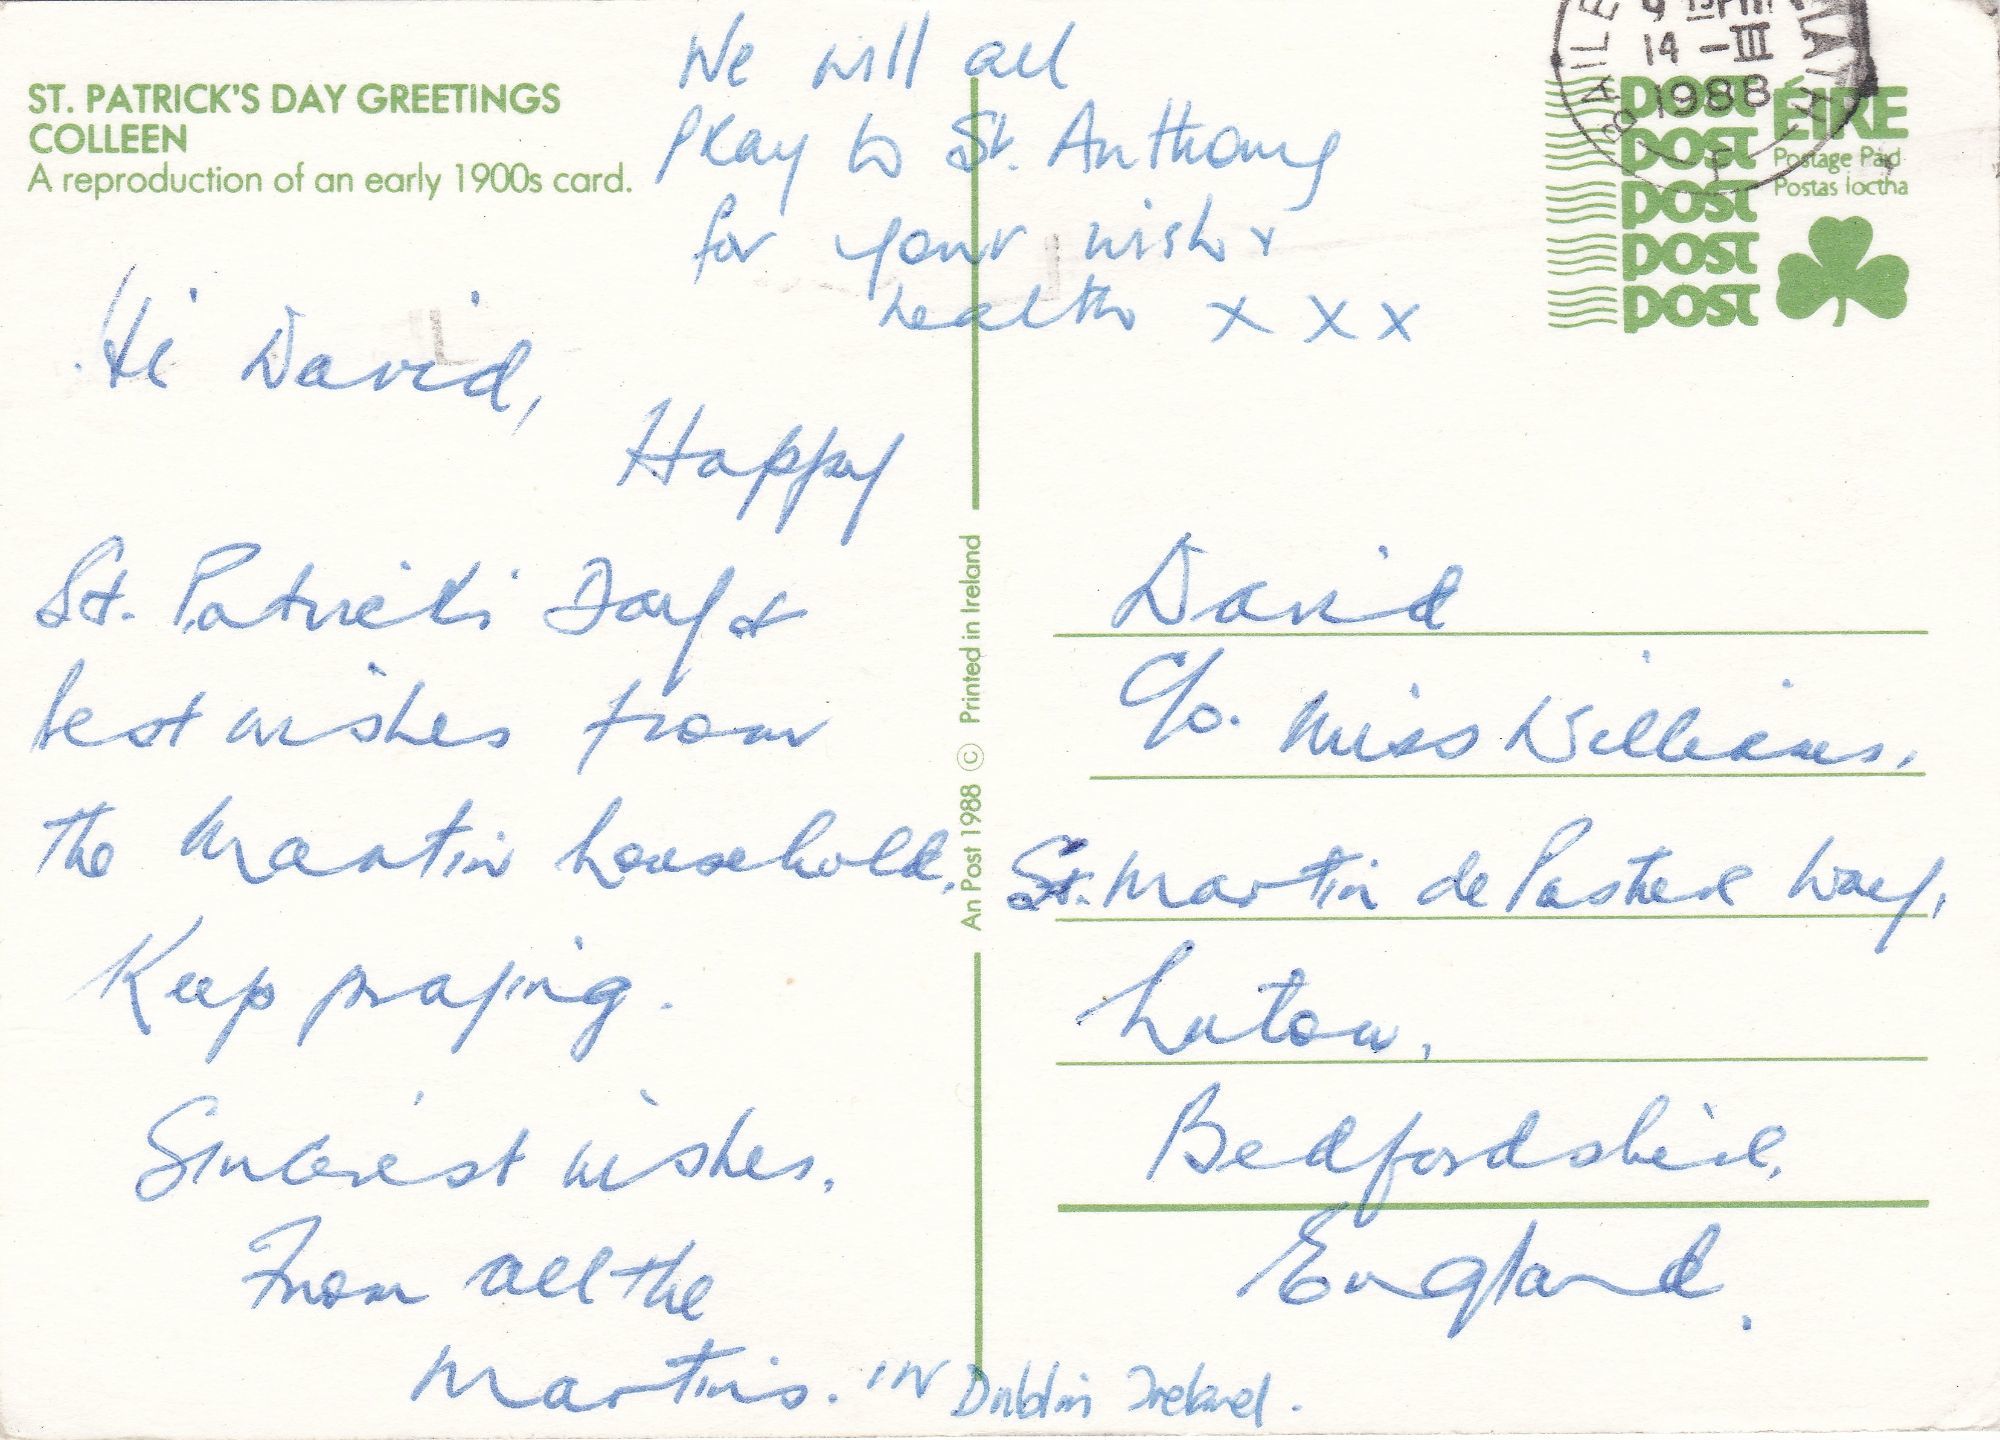 ST. PATRICK'S DAY GREETINGS
COLLEEN
A reproduction of an early 1900s card.
We will all
pray to St. Anthony
for your wish &
health x x x
Hi David,
Happy
St. Patrick's Day &
best wishes from
the Martin household.
Keep praying.
Sincerest wishes.
From all the
Martins. IN Dublin Ireland.
An Post 1988 © Printed in Ireland
BAILE
14 -III
1988
POST
POST
POST
POST
POST
ÉIRE
Postage Paid
Postas Íoctha
David
c/o. Miss Williams,
St. Martin de Way,
Luton,
Bedfordshire,
England.